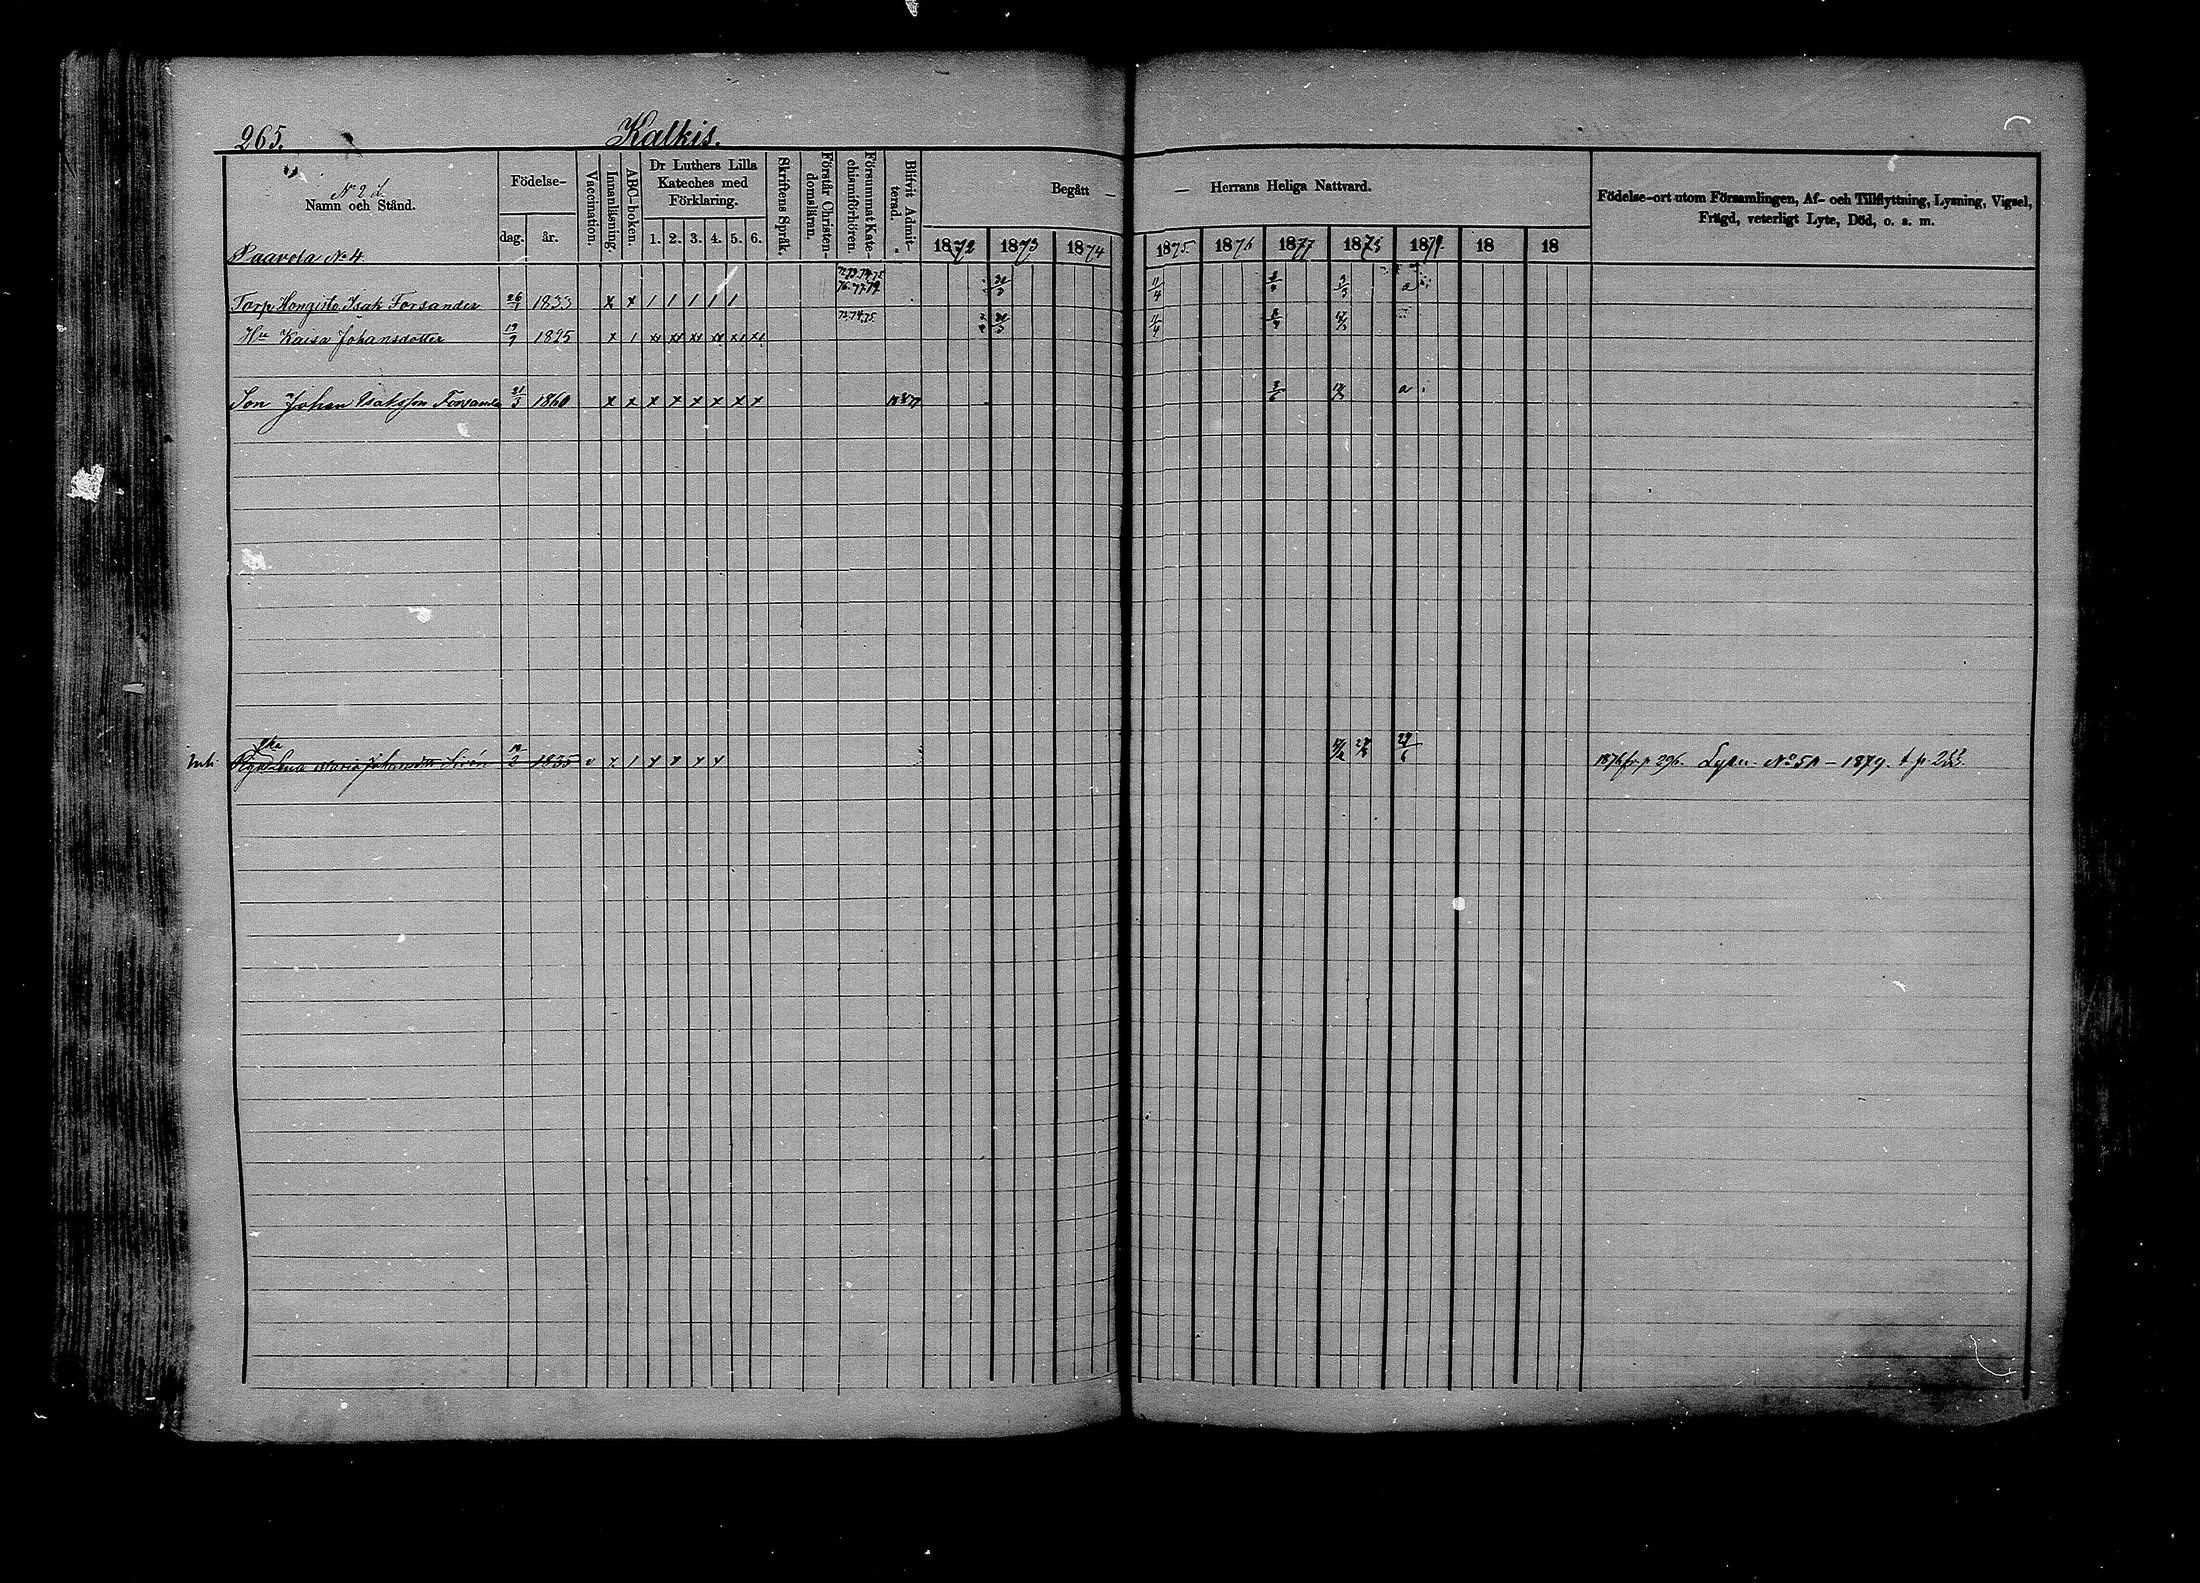 265.
Kalkis.
N:o 2 d.
Namn och Stånd.
Födelse-
dag. år.
Vaccination.
Innanläsning.
ABC-boken.
Dr Luthers Lilla Kateches med Förklaring.
1. 2. 3. 4. 5. 6.
Skriftens Språk.
Förstår Christendomsläran.
Försummat Katechismiförhören.
Blifvit Admitterad.
Begått — — Herrans Heliga Nattvard.
1872 1873 1874 1875. 1876 1877 1878 1879. 18 18
Födelse-ort utom Församlingen, Af- och Tillflyttning, Lysning, Vigsel,
Frägd, veterligt Lyte, Död, o. s. m.
Paavola No 4.
72.73.74.75
76.77.79.
Torp. Hongisto Isak Forsander 26/1 1833 x x 1 1 1 1 1 11/4 a
72.74.75.
Hu Kaisa Johansdotter 19/9 1825 x 1 11/4
Son Johan Isaksson Forsander 21/3 1860 x x x x x x x x a
Pigan Lena Maria Johansdr 1835 v x 1 x x x x 29/6 1876 fr. p. 296. Lysn. No 51 - 1879.